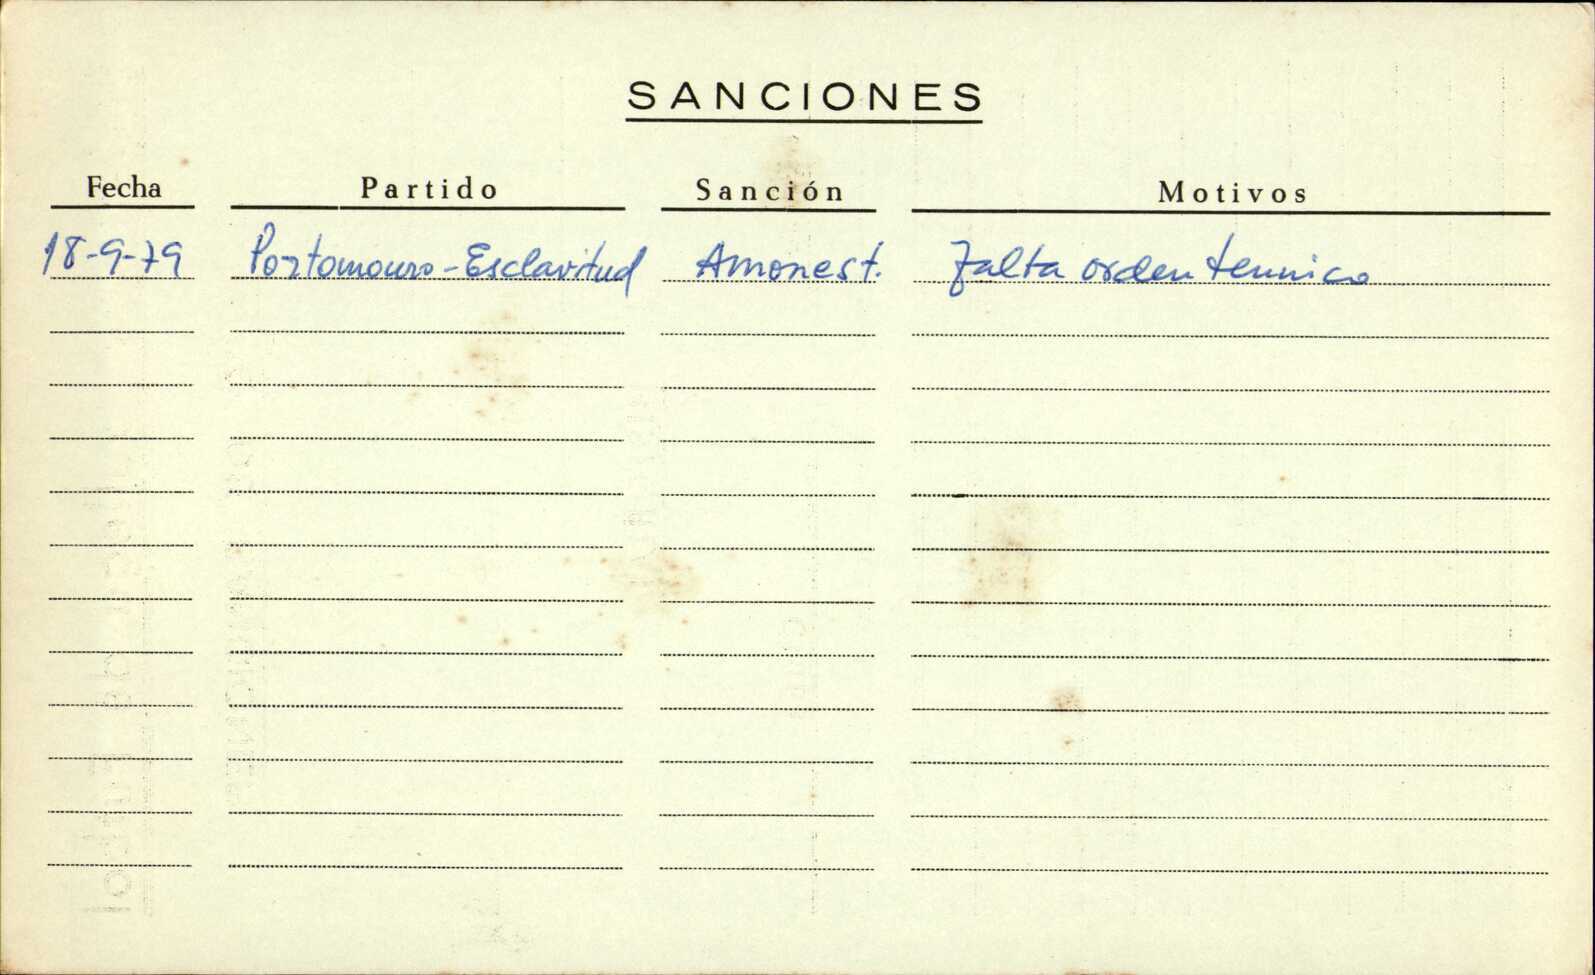 SANCIONES
Fecha Partido Sanción Motivos
18-9-79 Portomouro-Esclavitud Amonest. Falta orden tecnico